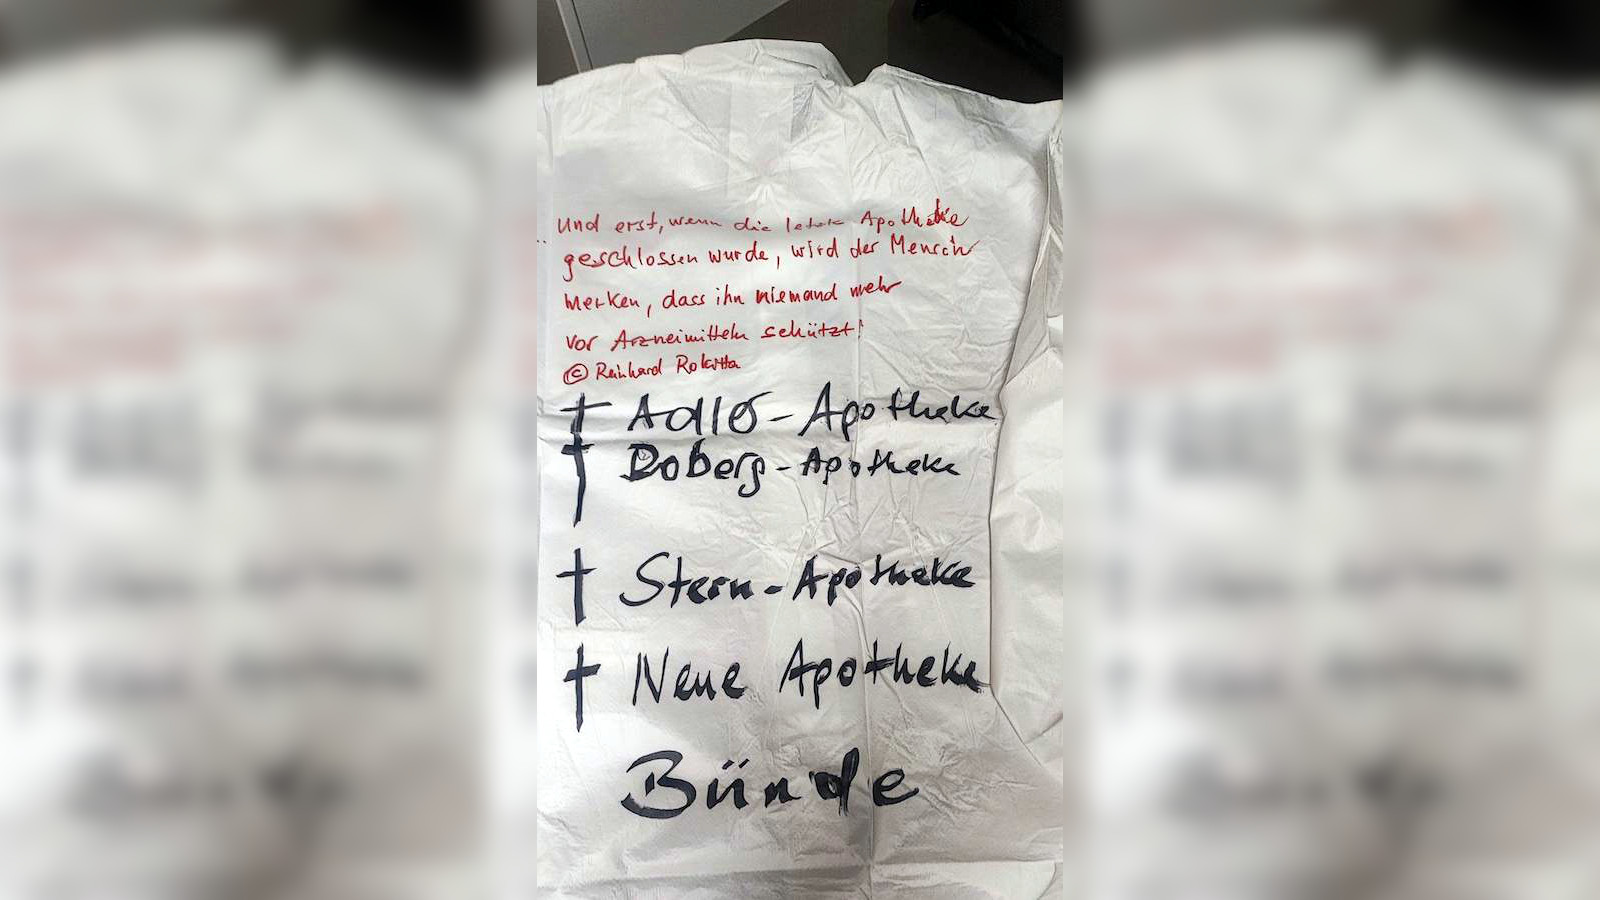 ... Und erst, wenn die letzte Apotheke
geschlossen wurde, wird der Mensch
merken, dass ihn niemand mehr
vor Arzneimitteln schützt!
© Reinhard Rokitta
† Adler-Apotheke
† Doberg-Apotheke
† Stern-Apotheke
† Neue Apotheke
Bünde